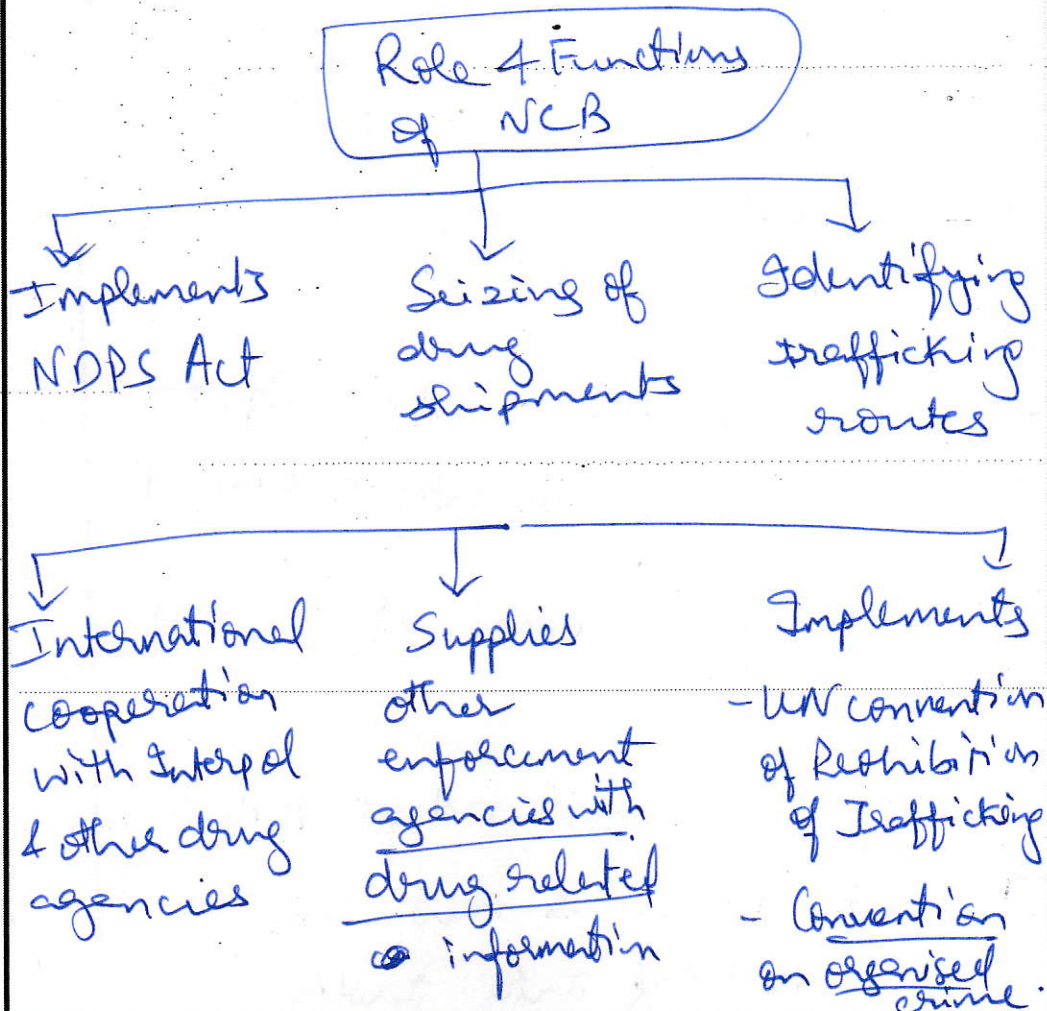 Role & Functions
of NCB
Implements
NDPS Act
Seizing of
drug
shipments
Identifying
trafficking
routes
International
cooperation
with Interpol
& other drug
agencies
Supplies
other
enforcement
agencies with
drug related
information
Implements
- UN convention
of Prohibition
of Trafficking
- Convention
on organised
crime.